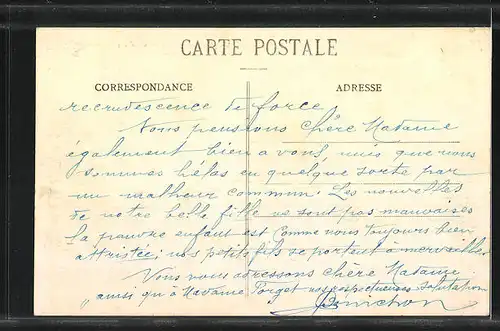 CARTE POSTALE
CORRESPONDANCE
ADRESSE
recrudescence de force
Nous pensions chère Madame
également bien a vous, mais que nous
sommes hélas en quelque sorte par
un malheur commun. Les nouvelles
de notre belle fille ne sont pas mauvaises
la pauvre enfant est comme nous toujours bien
attristée; nos petits fils se portent à merveilles
Vous nous adressons chère Madame
ainsi qu'à Madame Forget respectueuses salutation